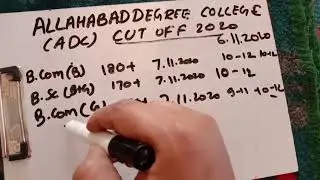 ALLAHABAD DEGREE COLLEGE
(ADC) CUT OFF 2020
6.11.2020
B.Com (B) 180+ 7.11.2020 10-12
B.Sc (B+G) 170+ 7.11.2020 10-12
B.Com (G) 7.11.2020 9-11 10-12